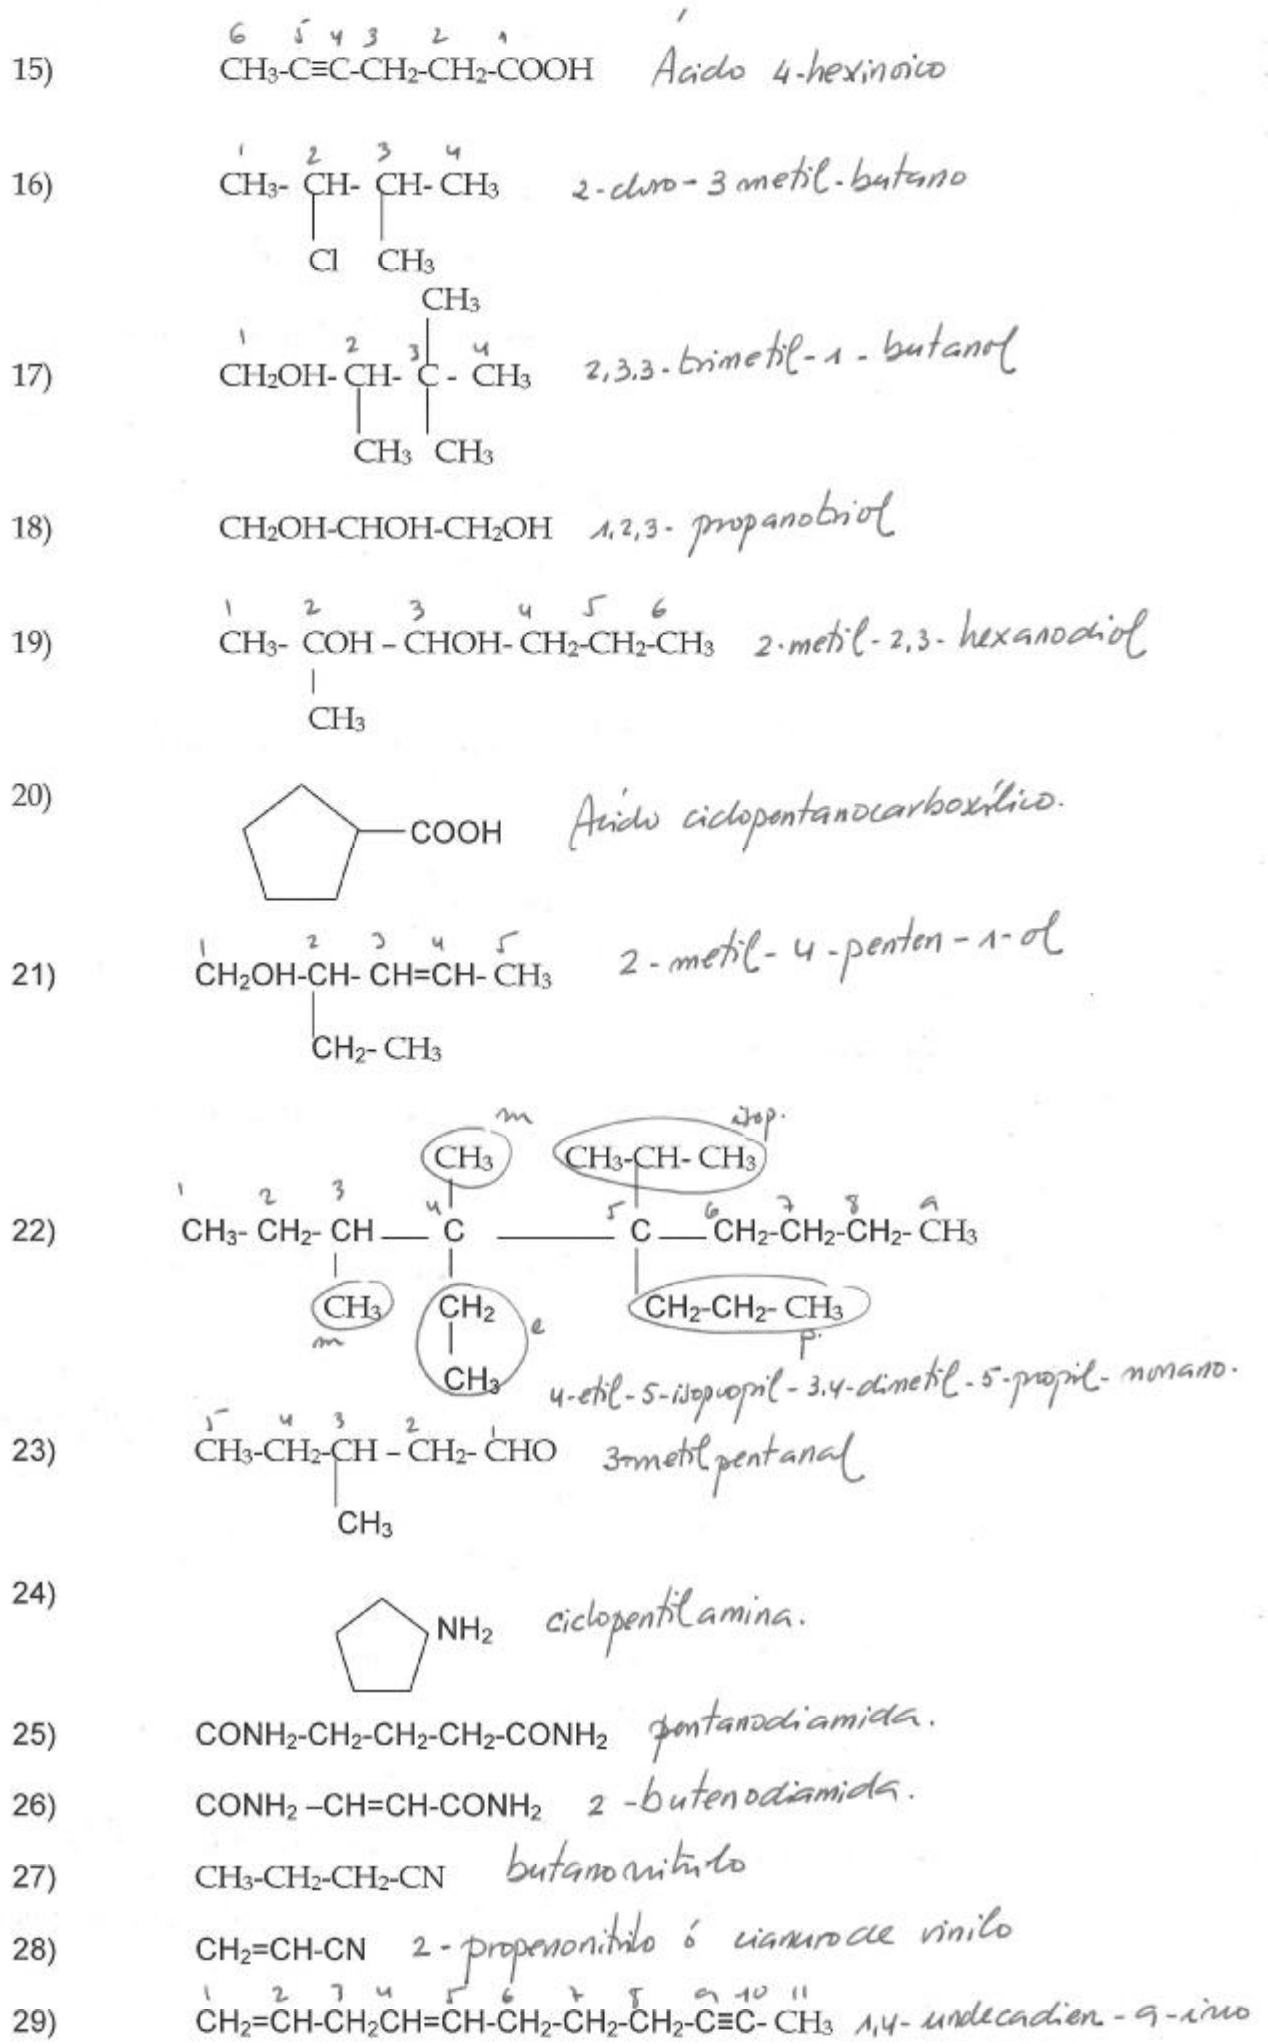 6 5 4 3 2 1
15) CH3-C≡C-CH2-CH2-COOH Ácido 4-hexinoico
1 2 3 4
16) CH3- CH- CH- CH3 2-cloro-3 metil-butano
Cl CH3
CH3
1 2 3 4
17) CH2OH- CH- C - CH3 2,3,3-trimetil-1-butanol
CH3 CH3
18) CH2OH-CHOH-CH2OH 1,2,3-propanotriol
1 2 3 4 5 6
19) CH3- COH – CHOH- CH2-CH2-CH3 2-metil-2,3-hexanodiol
CH3
20) COOH Ácido ciclopentanocarboxílico.
1 2 3 4 5
21) CH2OH-CH- CH=CH- CH3 2-metil-4-penten-1-ol
CH2- CH3
m isop.
CH3 CH3-CH- CH3
1 2 3 4 5 6 7 8 9
22) CH3- CH2- CH C C CH2-CH2-CH2- CH3
CH3 CH2 CH2-CH2- CH3
m e p.
CH3 4-etil-5-isopropil-3,4-dimetil-5-propil-nonano.
5 4 3 2 1
23) CH3-CH2-CH – CH2- CHO 3-metilpentanal
CH3
24) NH2 ciclopentilamina.
25) CONH2-CH2-CH2-CH2-CONH2 pentanodiamida.
26) CONH2 –CH=CH-CONH2 2-butenodiamida.
27) CH3-CH2-CH2-CN butanonitrilo
28) CH2=CH-CN 2-propenonitrilo ó cianuro de vinilo
1 2 3 4 5 6 7 8 9 10 11
29) CH2=CH-CH2CH=CH-CH2-CH2-CH2-C≡C- CH3 1,4-undecadien-9-ino